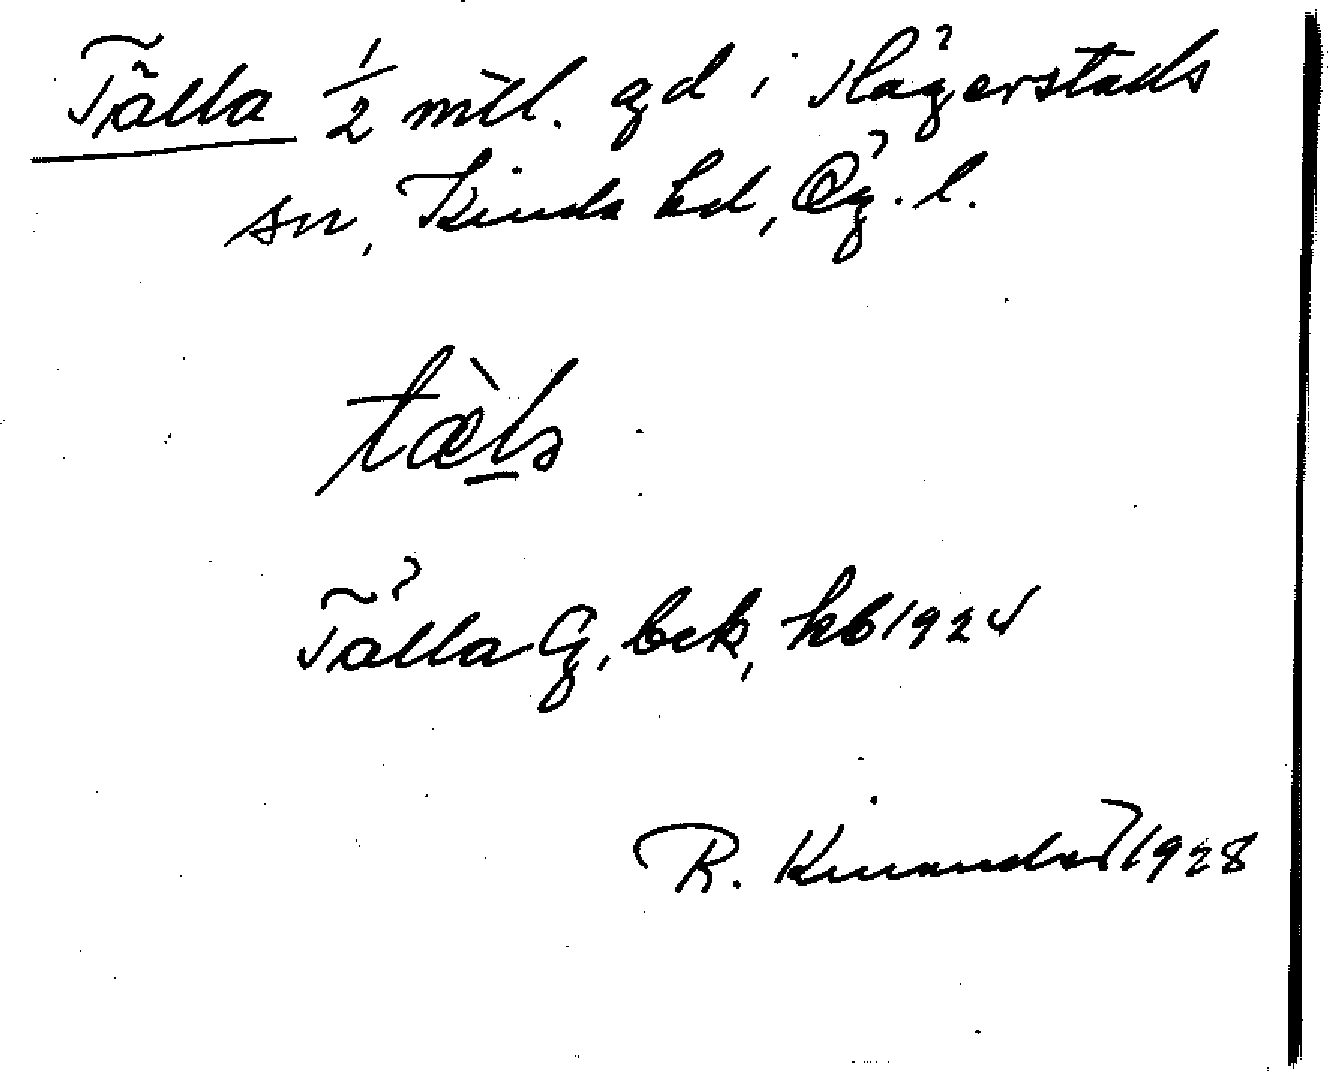 Tälla ½ mtl. gd i Hägerstads
sn, Kinda hd, Ög. l.
tæ̀l̲a
Tälla G, bek, kb 1924
R. Kinander 1928